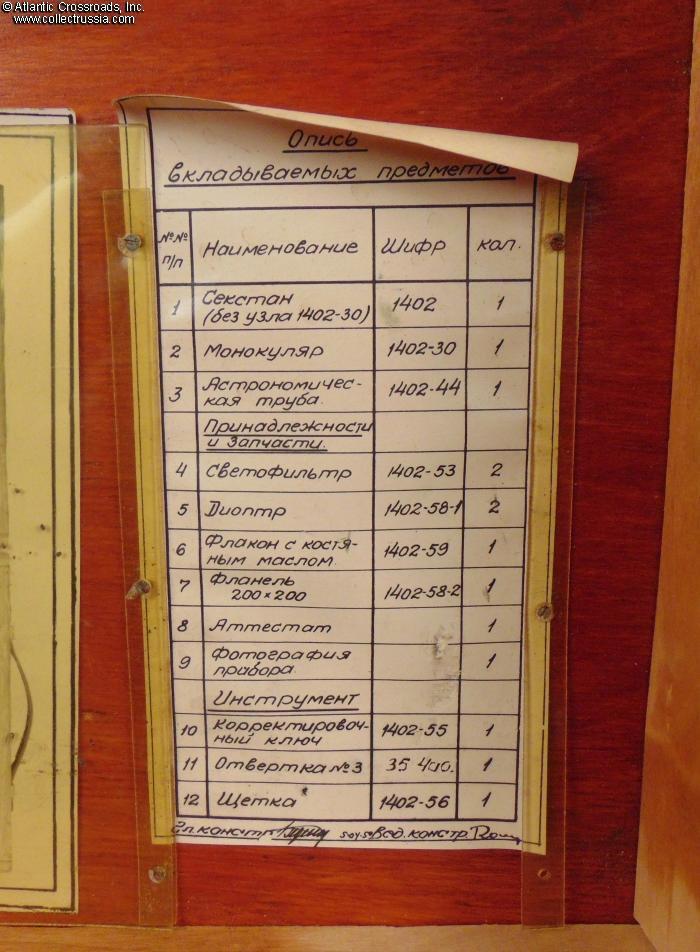 © Atlantic Crossroads, Inc.
www.collectrussia.com
Опись
вкладываемых предметов
№№ п/п Наименование Шифр кол.
1 Секстан 1402 1
(без узла 1402-30)
2 Монокуляр 1402-30 1
3 Астрономичес- 1402-44 1
кая труба.
Принадлежности
и Запчасти.
4 Светофильтр 1402-53 2
5 Диоптр 1402-58-1 2
6 Флакон с костя- 1402-59 1
ным маслом
7 Фланель 1402-58-2 1
200×200
8 Аттестат 1
9 Фотография 1
прибора.
Инструмент
10 Корректировоч- 1402-55 1
ный ключ
11 Отвертка №3 1
12 Щетка 1402-56 1
Гл. констр. Вед. констр.